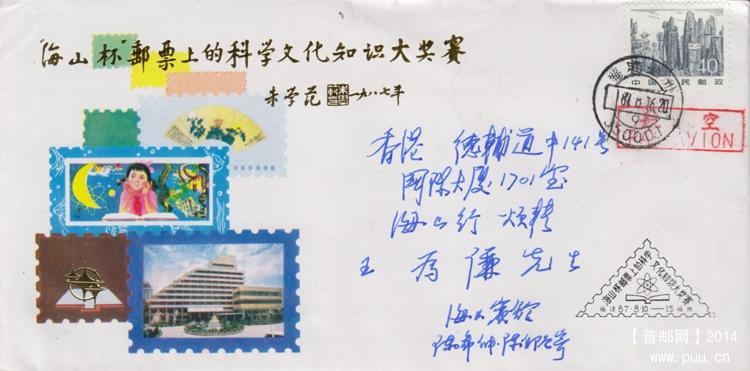 "海山杯"郵票上的科学文化知识大奖赛
朱学范 一九八七年
40
中国人民邮政
福建福州
87.8.16.20
350001
航空
PAR AVION
香港 德輔道中141号
国际大厦1701室
海山行
王 为 谦 先生
海山杯郵票上的科学
文化知识大奖赛
福建 87·8·10—15 福州
【普邮网】2014
www.puu.cn